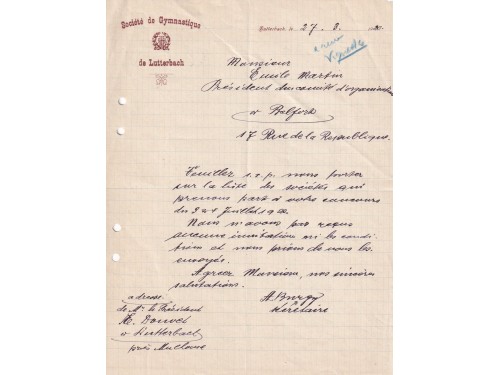 Société de Gymnastique
de Lutterbach
Lutterbach, le 27. 8. 1920.
Vignette
Monsieur
Emile Martin
Président du comité d'organisation
à Belfort
17 Rue de la République.
Veuillez s.v.p. nous porter
sur la liste des sociétés qui
prenons part à votre concours
du 3 et 4 Juillet 1920.
Nous n'avons pas reçu
aucune invitation ni les condi
tions et nous prions de nous les
envoyés.
Agréez Monsieur, nos sincères
salutations.
adresse
de Mr le Président
E.
à Lutterbach
près Mulhouse
A. Burgy
Secrétaire